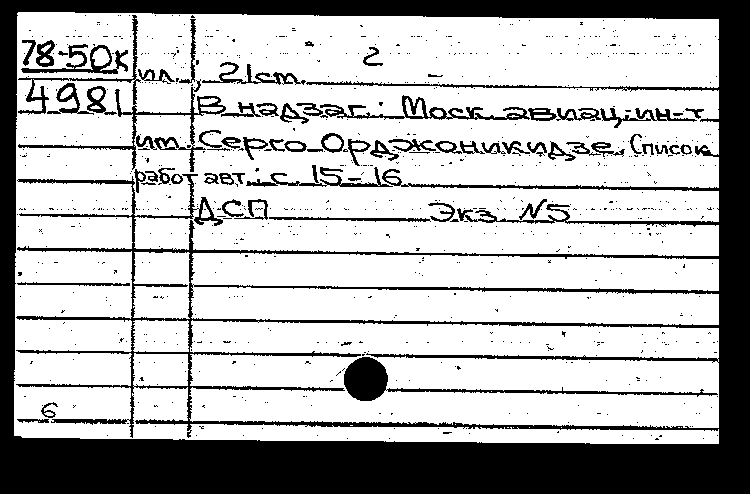 2
78-50к ил.; 21 ст.
4981 В надзаг.: Моск. авиац. ин-т
им. Серго Орджоникидзе. Список
работ авт.: с. 15-16
ДСП Экз. N5
6